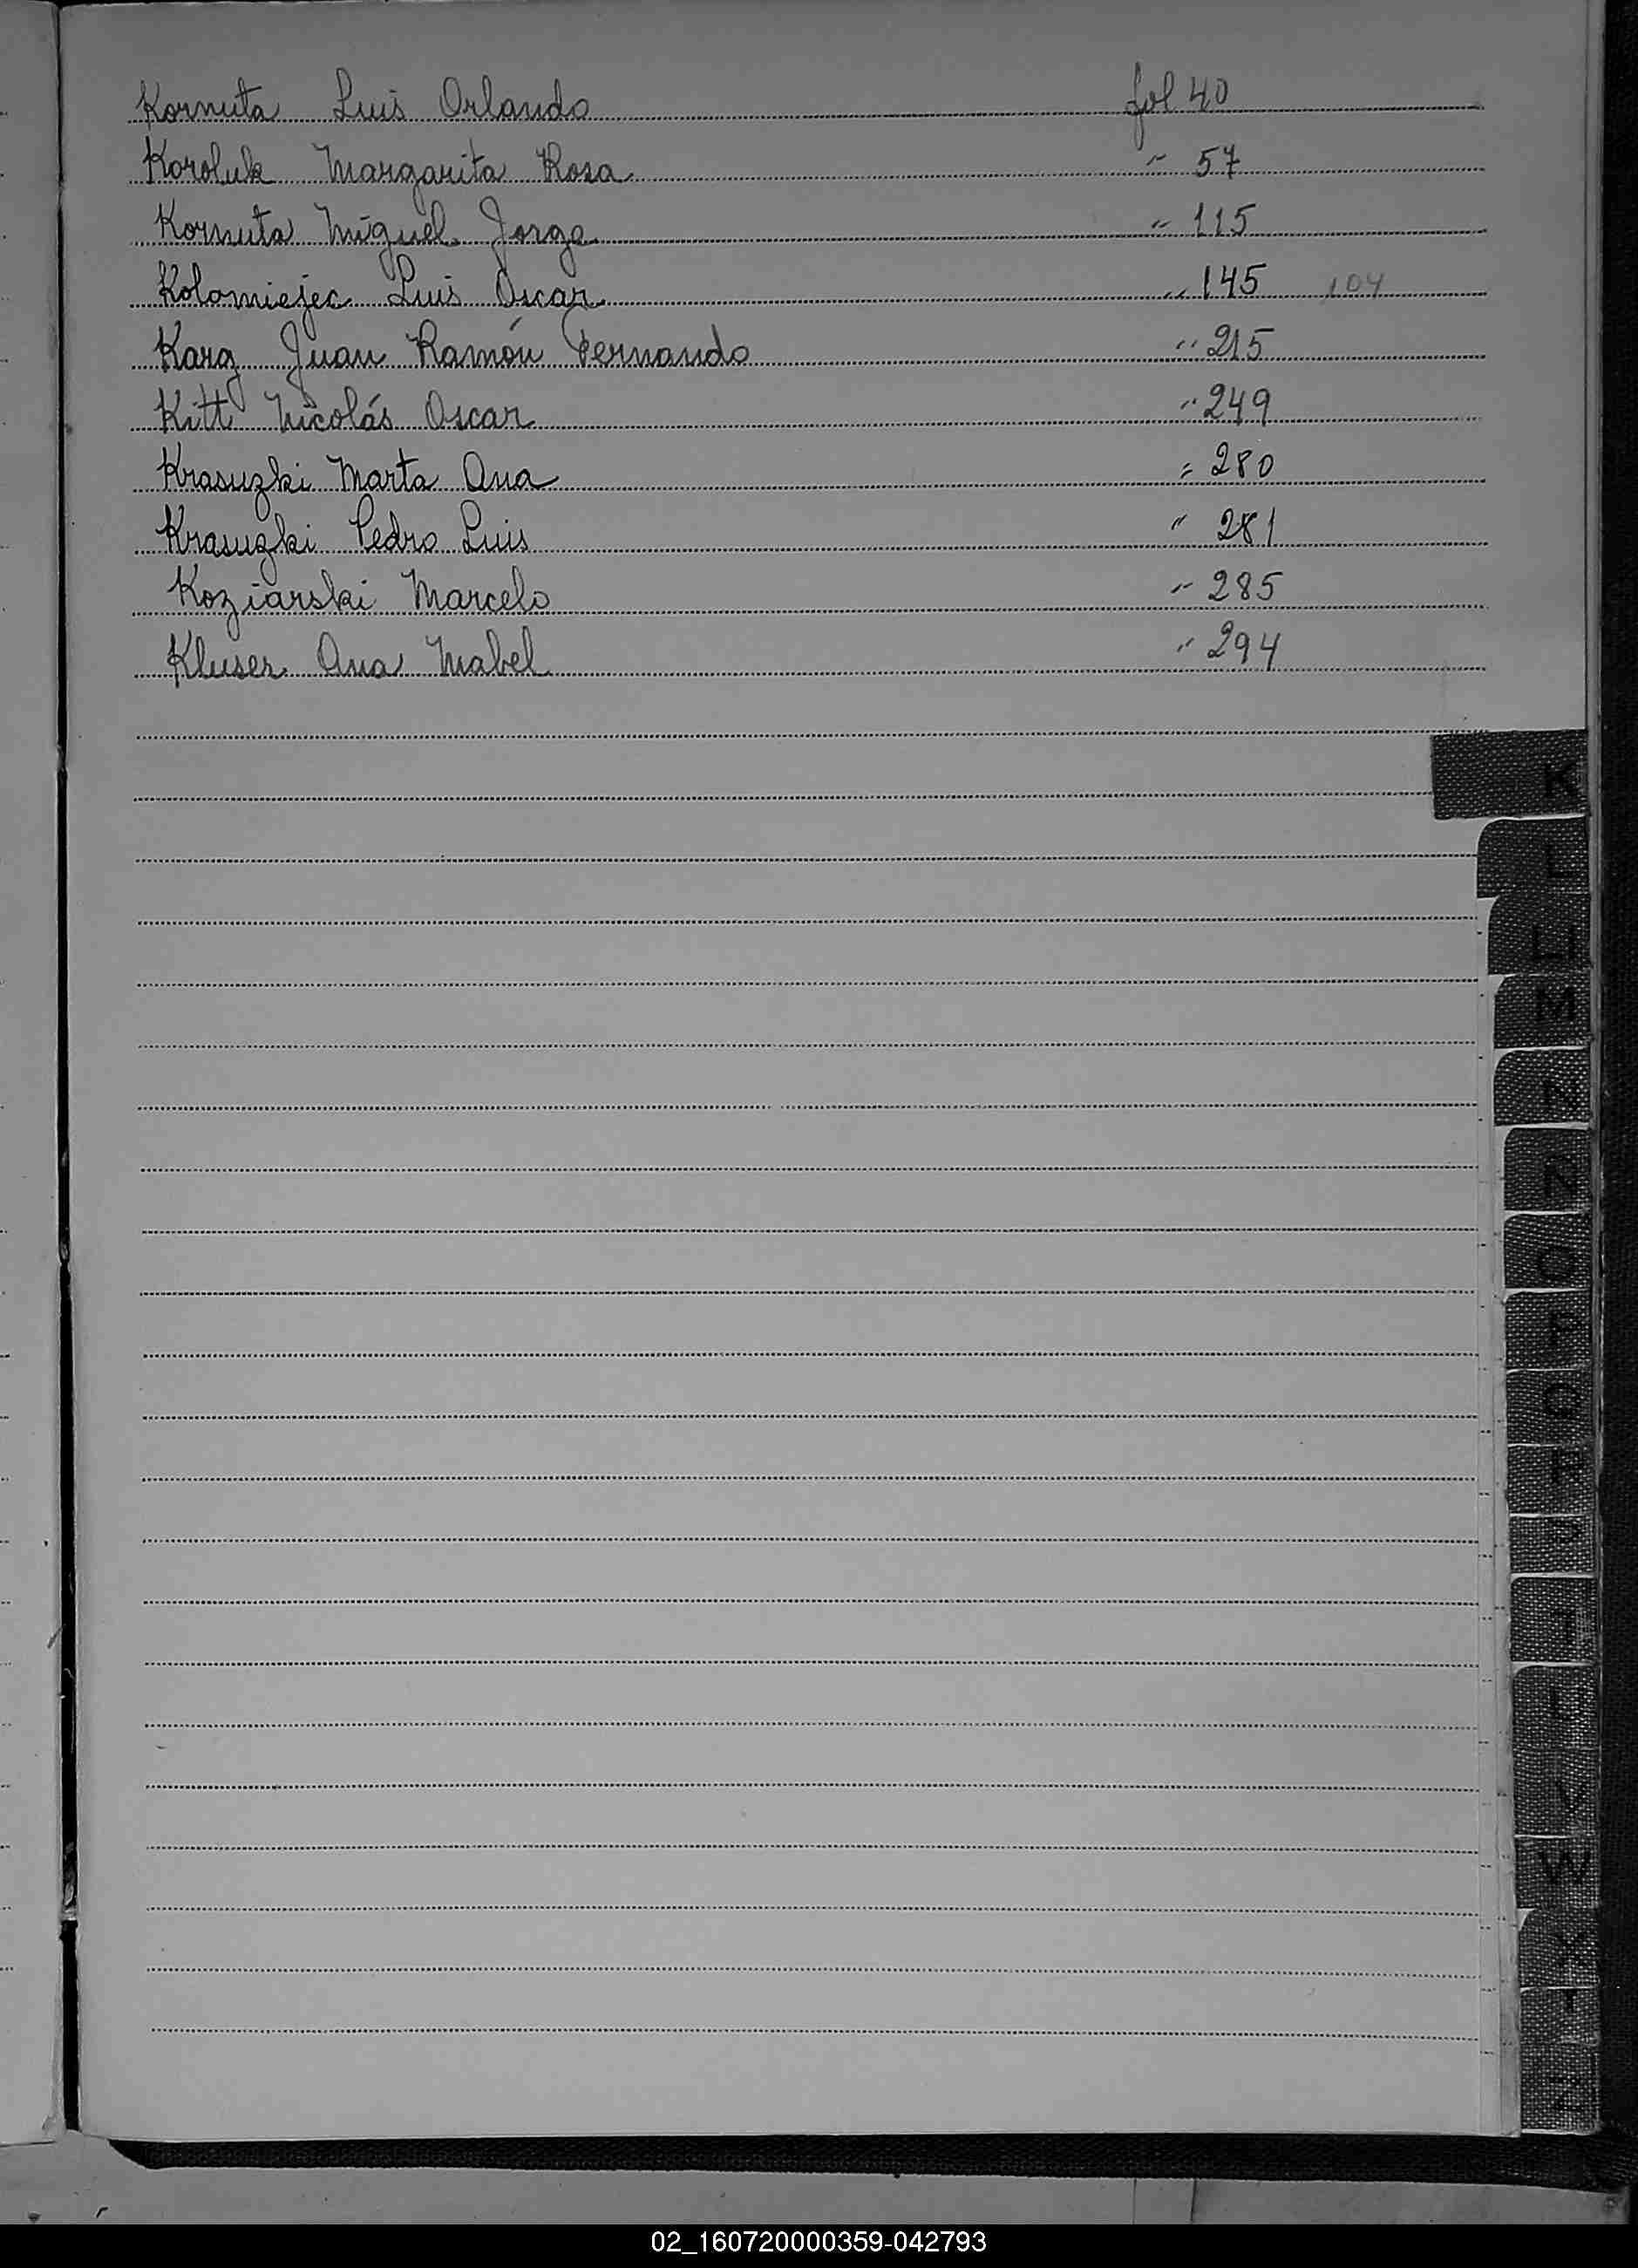 Kornuta Luis Orlando fol 40
Koroluk Margarita Rosa " 57
Kornuta Miguel Jorge " 115
Kolomiejec Luis Oscar " 145 104
Karg Juan Ramón Fernando " 215
Kitt Nicolás Oscar " 249
Krasuzki Marta Ana " 280
Krasuzki Pedro Luis " 281
Koziarski Marcelo " 285
Kluser Ana Mabel " 294
K
L
LL
M
N
Ñ
O
P
Q
R
S
T
V
W
X
Y
Z
02_160720000359-042793